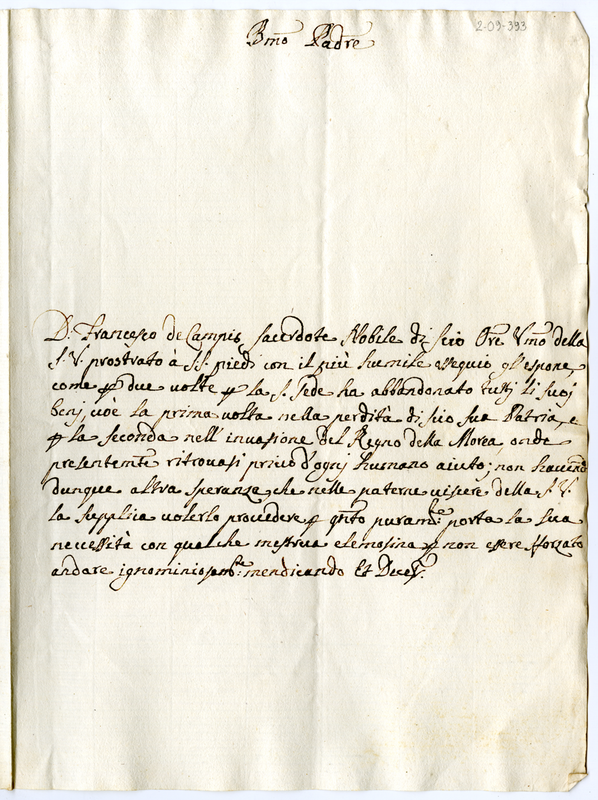 2-09-393
Bmo Padre
D. Francesco de Campis, sacerdote Nobile di Scio Ore Vmo della
S. V. prostrato à SS. piedi con il più humile ossequio gl'espone,
come p due volte p la S. Sede ha abbandonato tutti li suoj
benj, cioè la prima volta nella perdità di Scio sua Patria, e
p la seconda nell'invasione del Regno della Morea, onde
presentemte ritrovasi privo d'ognj humano aiuto; non havend
dunque altra speranza, che nelle paterne viscere della S. V.
la supplica volerlo provedere p qnto puramte porta la sua
necessità con qualche mestrua elemosina p non essere sforzato
andare ignominiosamte: mendicando Et Deces.